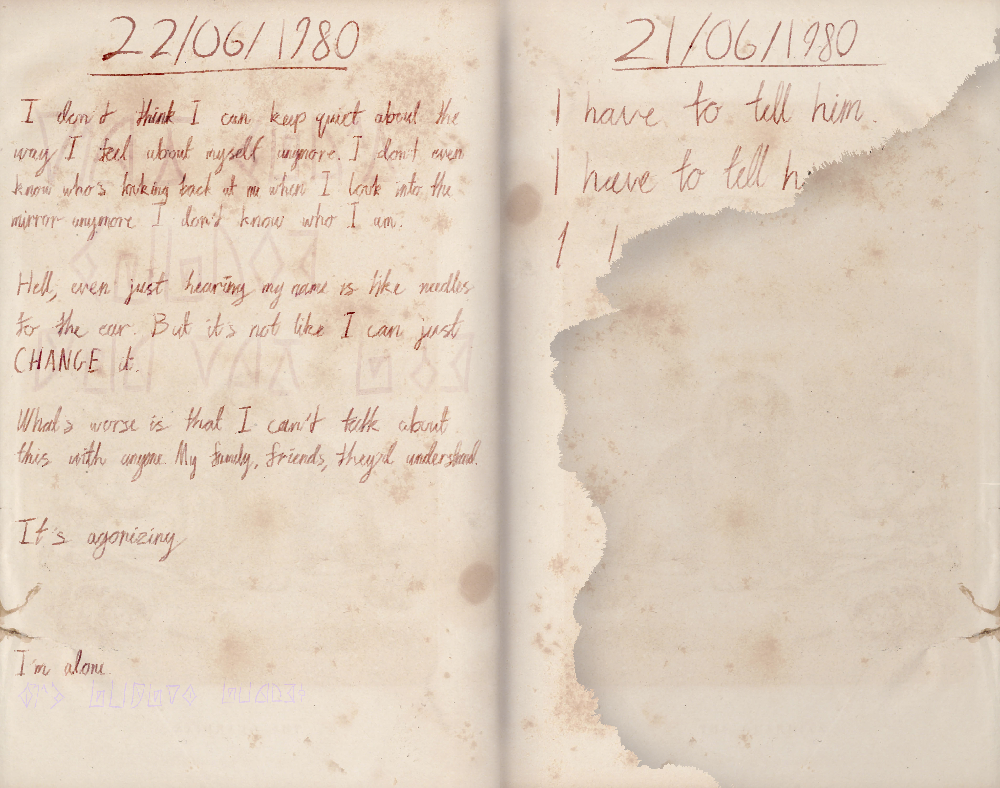 22/06/1980
I don't think I can keep quiet about the
way I feel about myself anymore. I don't even
know who's looking back at me when I look into the
mirror anymore I don't know who I am.
Hell, even just hearing my name is like needles
to the ear. But it's not like I can just
CHANGE it.
What's worse is that I can't talk about
this with anyone. My family, friends, they'd understand.
It's agonizing
I'm alone
21/06/1980
I have to tell him.
I have to tell h
I